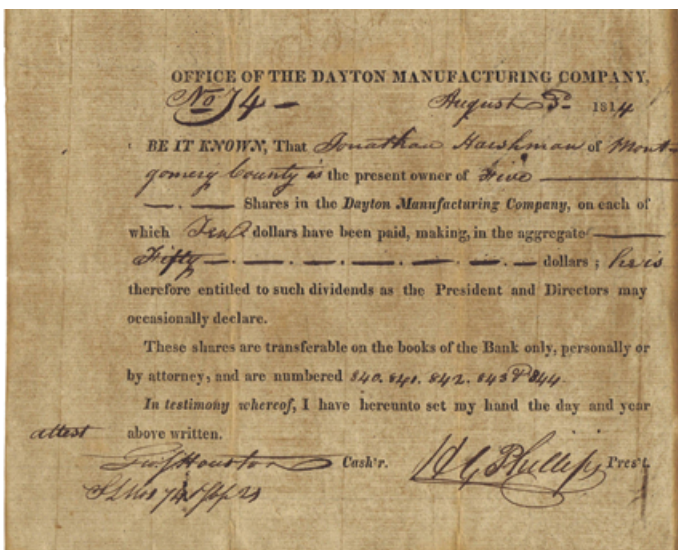 OFFICE OF THE DAYTON MANUFACTURING COMPANY,
No 74 — August 3d 1814
BE IT KNOWN, That Jonathan Harshman of Mont-
gomery County is the present owner of Five
Shares in the Dayton Manufacturing Company, on each of
which Ten dollars have been paid, making, in the aggregate
Fifty dollars; he is
therefore entitled to such dividends as the President and Directors may
occasionally declare.
These shares are transferable on the books of the Bank only, personally or
by attorney, and are numbered 840. 841. 842. 843 & 844.
In testimony whereof, I have hereunto set my hand the day and year
attest above written.
Geo S Houston Cash'r. H G Phillips Pres't.